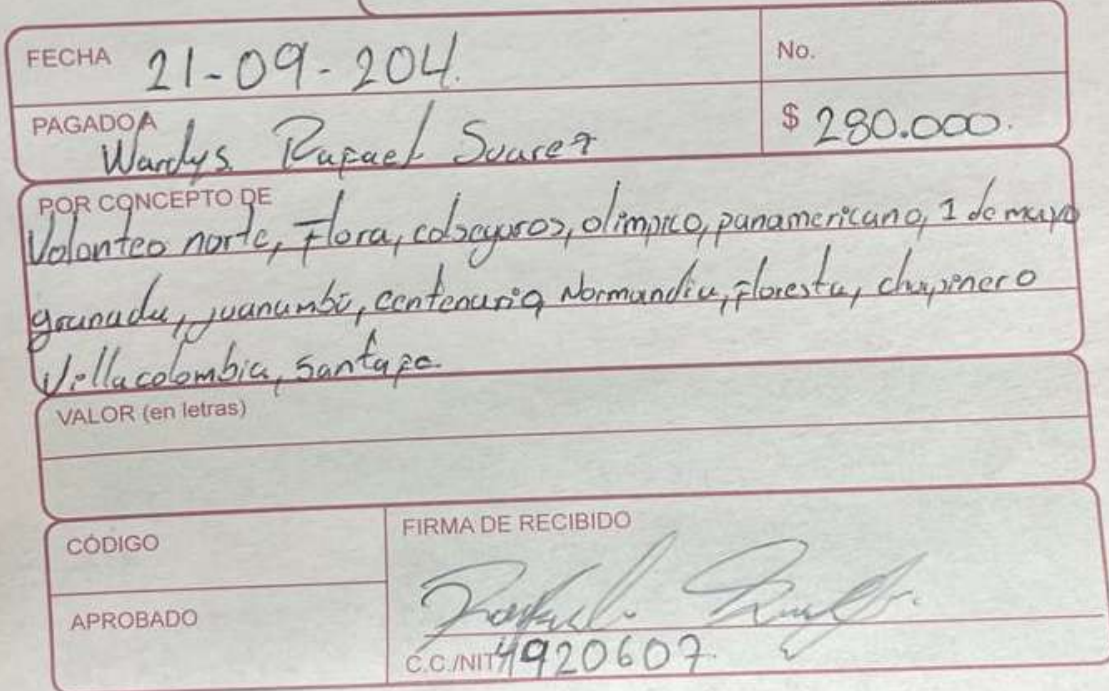 FECHA 21-09-204.
No.
PAGADO A Wardys Rafael Suarez
$ 280.000.
POR CONCEPTO DE
Volanteo norte, Flora, colseguros, olimpico, panamericano, 1 de mayo
granada, juanambú, centenario Normandia, floresta, chapinero
Villacolombia, Santafe.
VALOR (en letras)
CÓDIGO
FIRMA DE RECIBIDO
APROBADO
Rafael
C.C./NIT 4920607